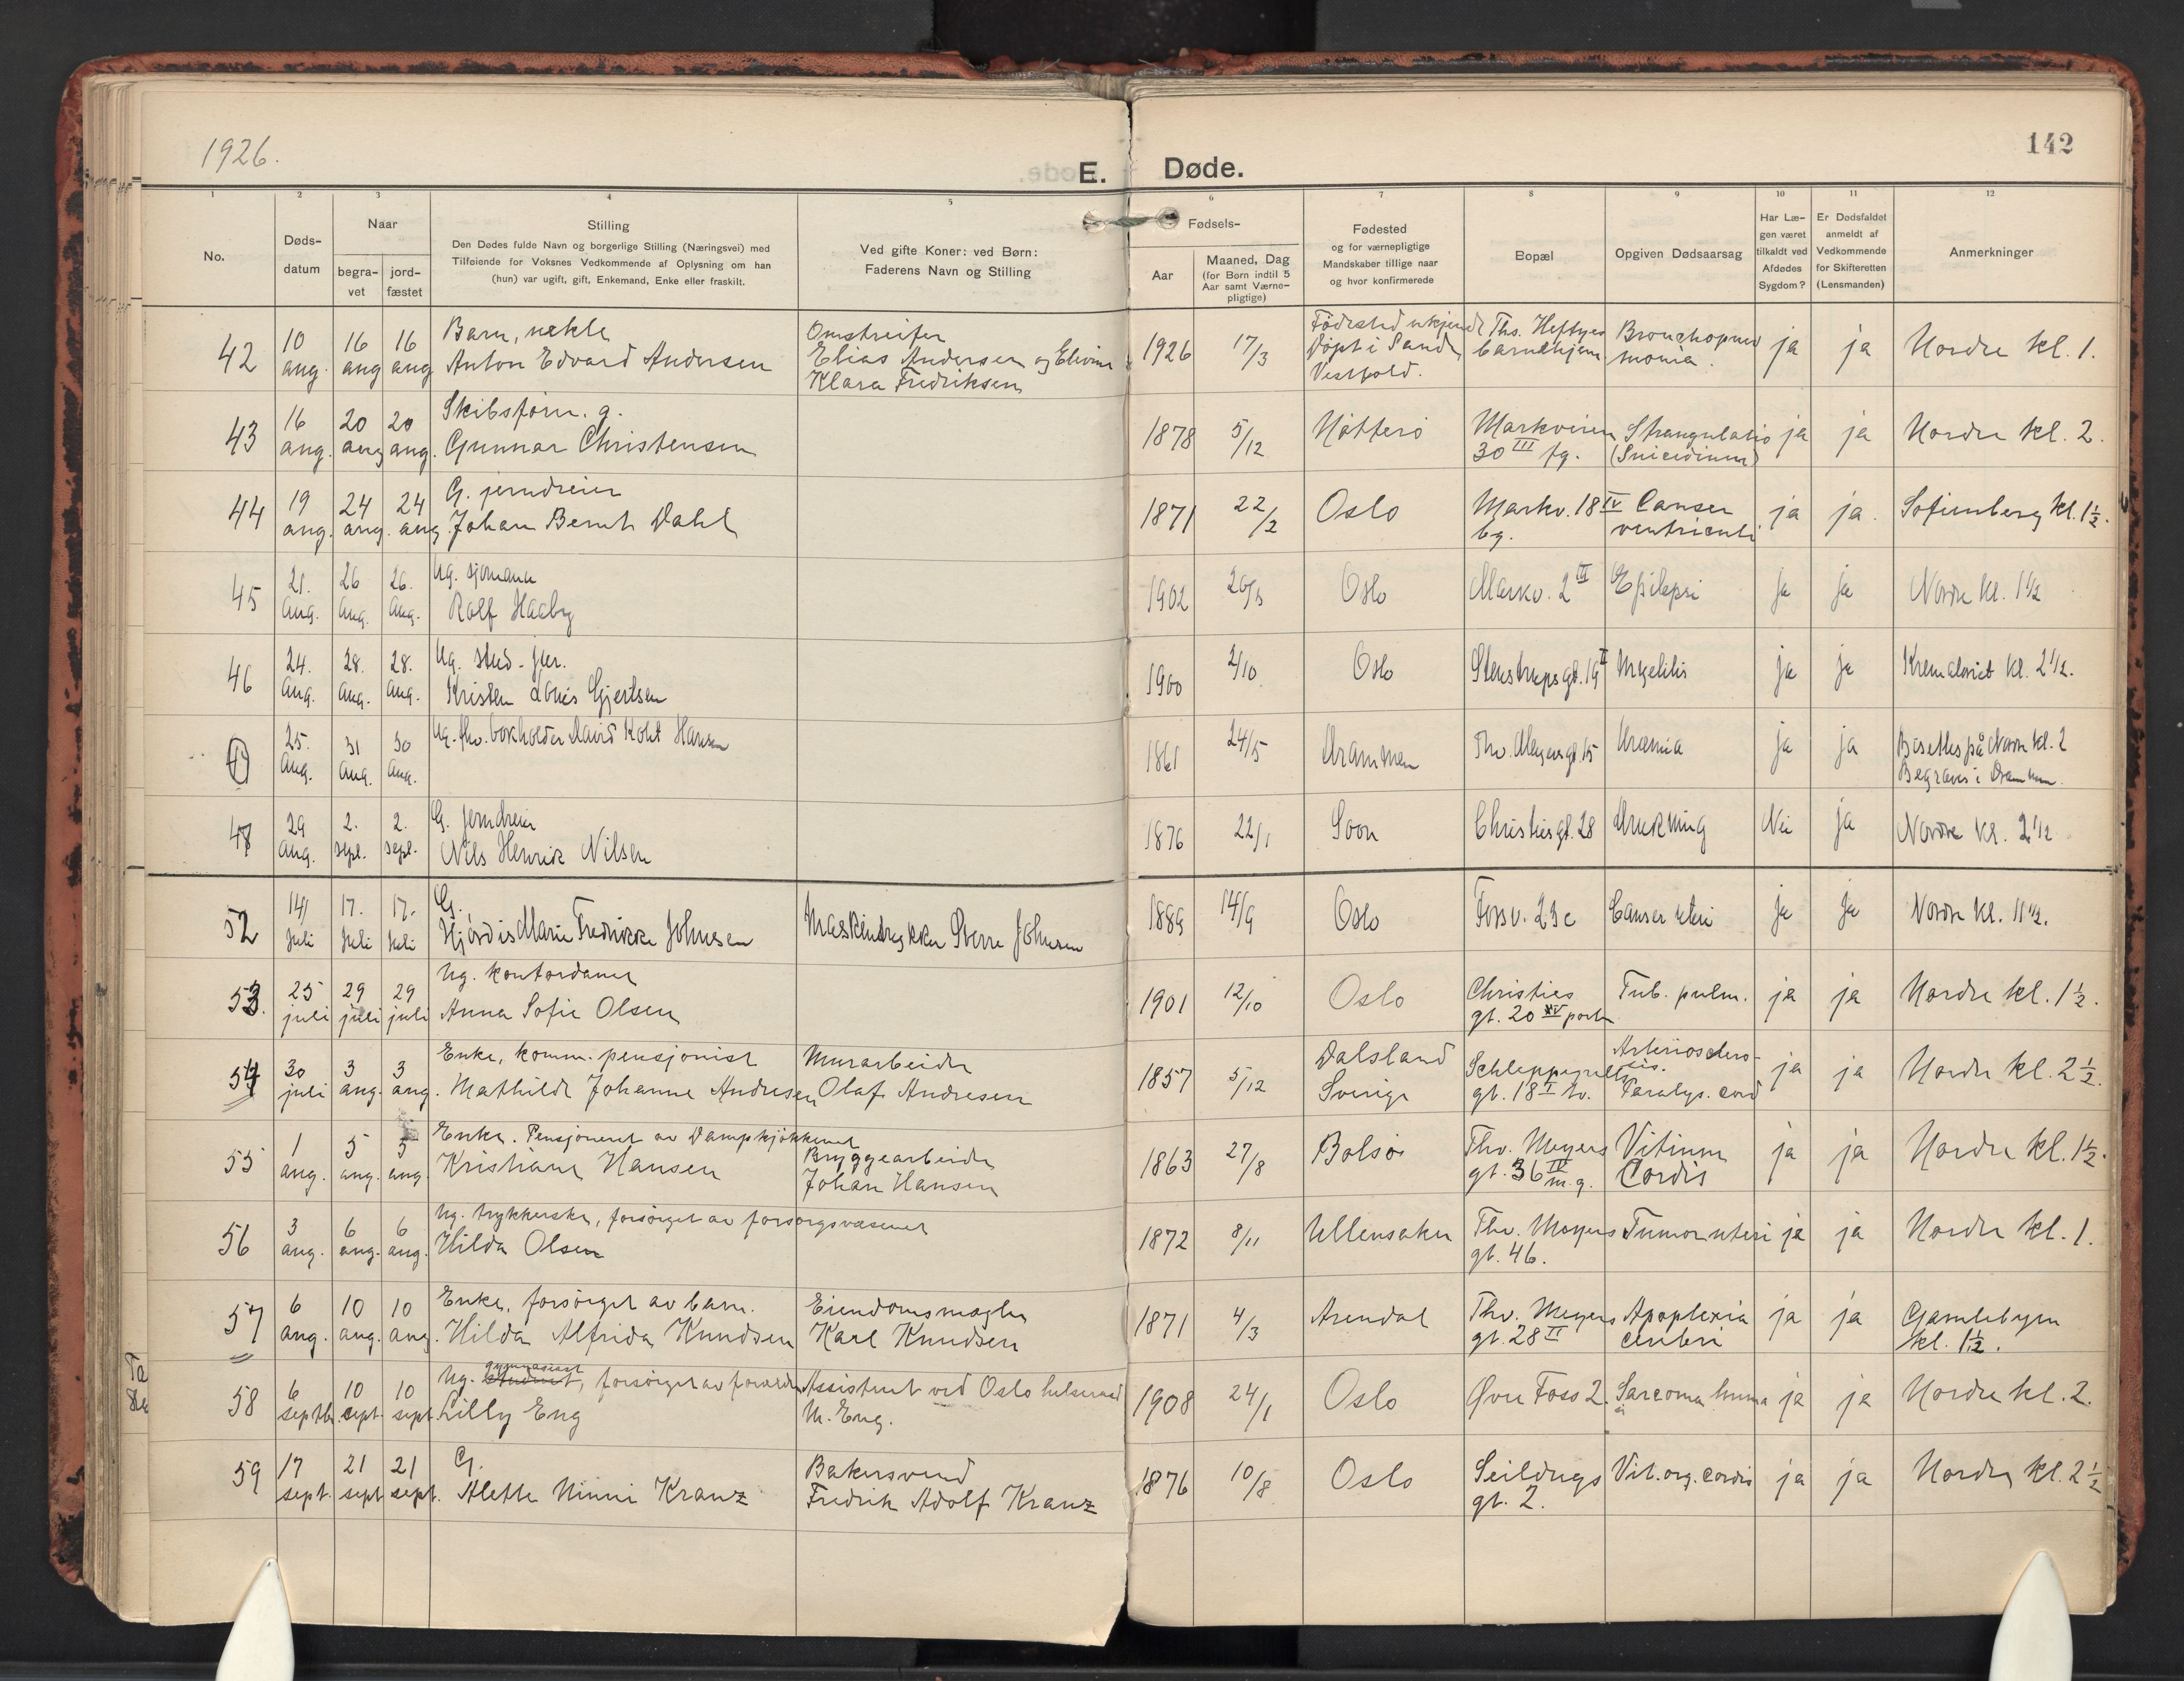 1926.
142
E. Døde.
1 2 3 4 5 6 7 8 9 10 11 12
No.
Døds-
datum
Naar
begra-
vet
jord-
fæstet
Stilling
Den Dødes fulde Navn og borgerlige Stilling (Næringsvei) med
Tilføiende for Voksnes Vedkommende af Oplysning om han
(hun) var ugift, gift, Enkemand, Enke eller fraskilt.
Ved gifte Koner: ved Børn:
Faderens Navn og Stilling
Fødsels-
Aar
Maaned, Dag
(for Børn indtil 5
Aar samt Værne-
pligtige)
Fødested
og for værnepligtige
Mandskaber tillige naar
og hvor konfirmerede
Bopæl
Opgiven Dødsaarsag
Har Læ-
gen været
tilkaldt ved
Afdødes
Sygdom?
Er Dødsfaldet
anmeldt af
Vedkommende
for Skifteretten
(Lensmanden)
Anmerkninger
42 10 aug. 16 aug 16 aug
Barn, uekte
Anton Edvard Andersen
Omstreifer
Elias Andersen og
Klara Fredriksen
1926 17/3
Födested ukjendt
Döpt i Sande
Vestfold.
Ths. Heftyes
barnehjem
Bronchopneu
monia.
ja ja Nordre kl. 1.
43 16 aug. 20 aug 20 aug.
Skibsförer. g.
Gunnar Christensen
1878 5/12 Nötterö
Markveien
30 III fg.
Strangulatio
(Suicidium)
ja ja Nordre kl. 2.
44 19 aug. 24 aug. 24 aug.
G. jerndreier
Johan Bernh Dahl
1871 22/2 Oslo
Markv. 18 IV
bg.
Cancer
ventriculi
ja ja. Sofienberg kl. 1½.
45 21. Aug. 26 Aug. 26. Aug.
Ug. sjömann
Rolf Haaby
1902 Oslo Markv. 2 III Epilepsi ja ja Nordre kl. 1½
46 24. Aug. 28. Aug. 28. Aug.
Ug. stud. jur.
Kristen Louis Gjertsen
1900 2/10 Oslo Stenstrupsgt. 19 II Myelitis ja ja Krematoriet kl. 2½.
47 25. Aug. 31 Aug. 30 Aug.
Ug. fhv. bokholder David Koht Hansen
1861 24/5 Drammen Thv. Meyersgt. 15 Uræmia ja ja
Bisettes på Nordre kl. 2
Begraves i Drammen.
48 29 Aug. 2. sept. 2. sept.
G. jerndreier
Nils Henrik Nilsen
1876 22/1 Soon Christiesgt. 28 Drukning Nei ja Nordre kl. 2½
52 14/ Juli 17. Juli 17. Juli
G.
Hjördis Marie Fredrikke Johnsen
Maskintrykker Sverre Johnsen
1889 14/9 Oslo Fossv. 23c Cancer uteri ja ja Nordre kl. 11½.
53. 25 juli 29 juli 29 juli
Ug. kontordame
Anna Sofie Olsen
1901 12/10 Oslo
Christies
gt. 20 IV porten
Tub. pulm. ja ja Nordre kl. 1½.
54 30 juli 3 aug. 3 aug.
Enke, komm. pensjonist
Mathilde Johanne Andresen
Murarbeider
Olaf Andresen
1857 5/12
Dalsland
Sverige
Schleppegrells
gt. 18 I tv.
Arteriosclero-
sis.
Paralys. cord
ja ja Nordre kl. 2½.
55 1 aug. 5 aug. 5 aug.
Enke. Pensjoneret av Dampkjökkenet
Kristiane Hansen
Bryggearbeider
Johan Hansen
1863 27/8 Bolsö
Thv. Meyers
gt. 36 IV m.g.
Vitium
Cordis
ja ja Nordre kl. 1½.
56 3 aug. 6 aug. 6 aug.
Ug. trykkerske, forsörget av forsorgsvæsenet
Hilda Olsen
1872 8/11 Ullensaker
Thv. Meyers
gt. 46.
Tumor uteri ja ja Nordre kl. 1.
57 6 aug. 10 aug. 10 aug.
Enke, forsörget av barn.
Hilda Alfrida Knudsen
Eiendomsmægler
Karl Knudsen
1871 4/3 Arendal
Thv. Meyers
gt. 28 II
Apoplexia
cerebri
ja ja
Gamlebyen
kl. 1½.
58 6 septb. 10 sept. 10 sept.
Ug. gymnasiast, forsörget av foreldre
Lilly Eng
Assistent ved Oslo helseraad
M. Eng.
1908 24/1 Oslo Øvre Foss 2. Sarcoma ja ja Nordre kl. 2.
59 17 sept. 21 sept 21 sept.
G.
Alette Ninni Kranz
Bakersvend
Fredrik Adolf Kranz
1876 10/8 Oslo
Seildugs
gt. 2.
Vit. org. cordis ja ja Nordre kl. 2½